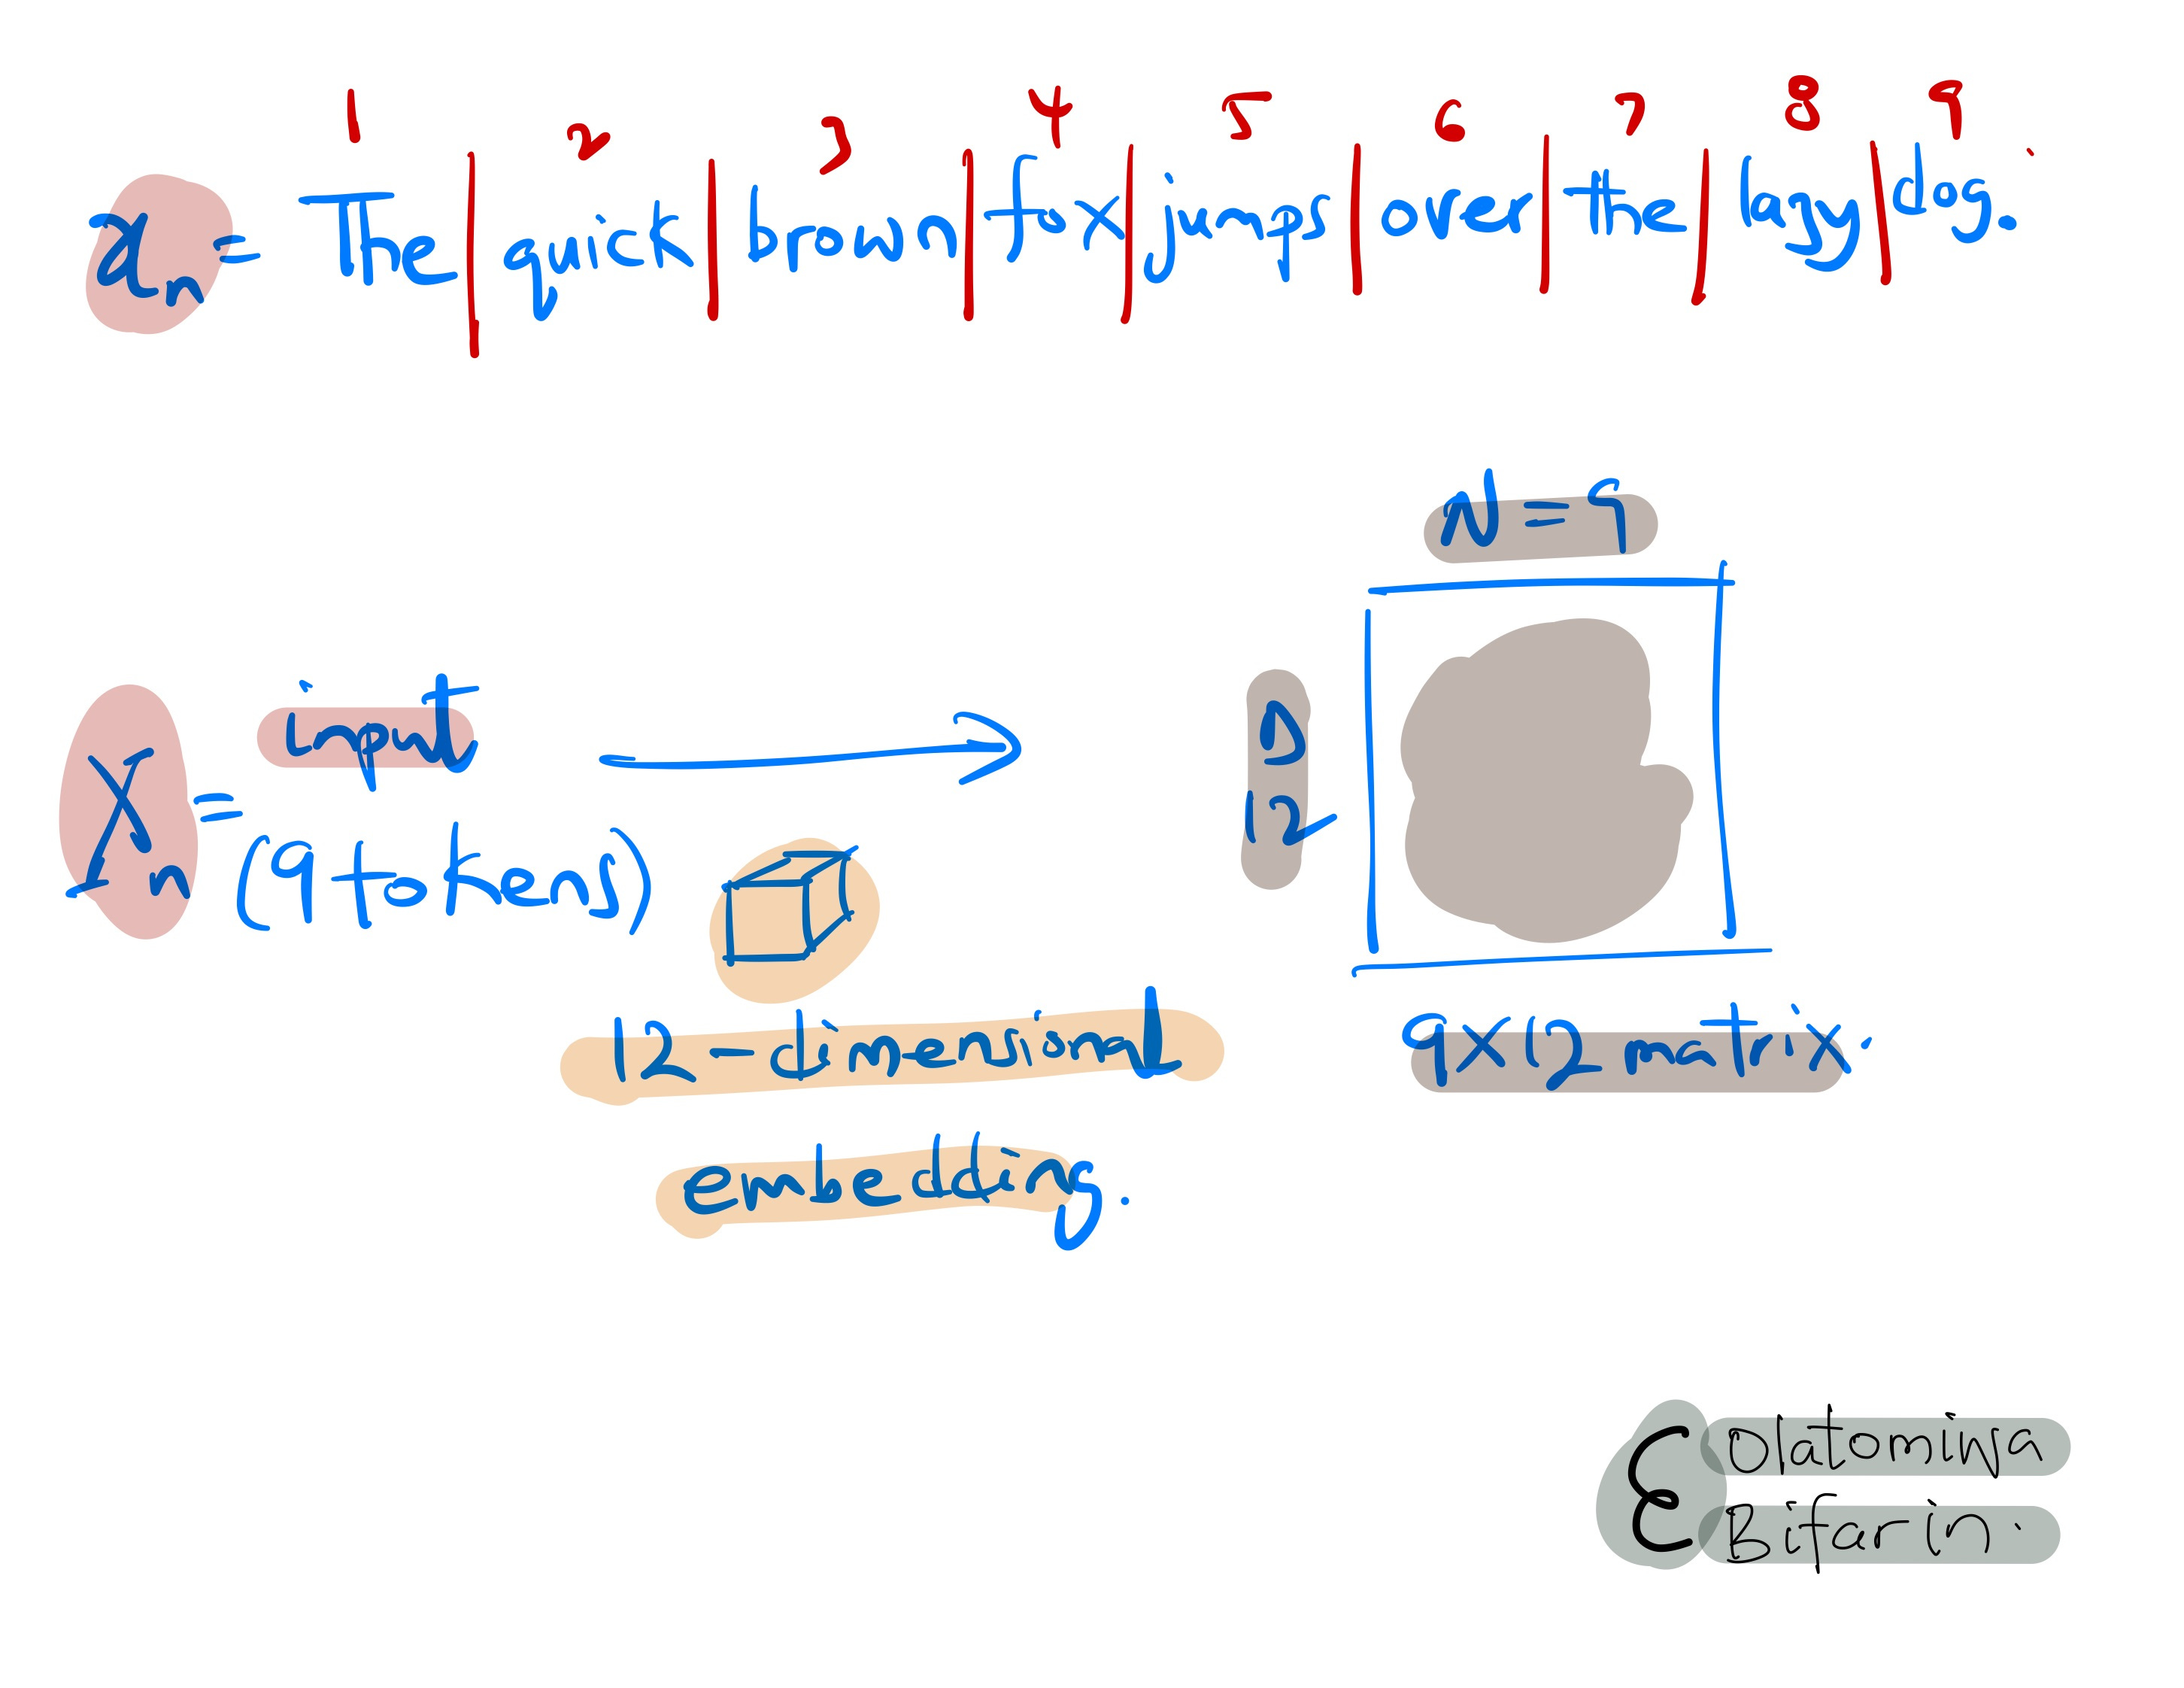 1 2 3 4 5 6 7 8 9
xₙ = The | quick | brown | fox | jumps | over | the | lazy | dog.
N = 9
input
D
12
Xₙ = (9 tokens)
12-dimensional
9x12 matrix.
embedding.
E Olatomiwa
Bifarin.